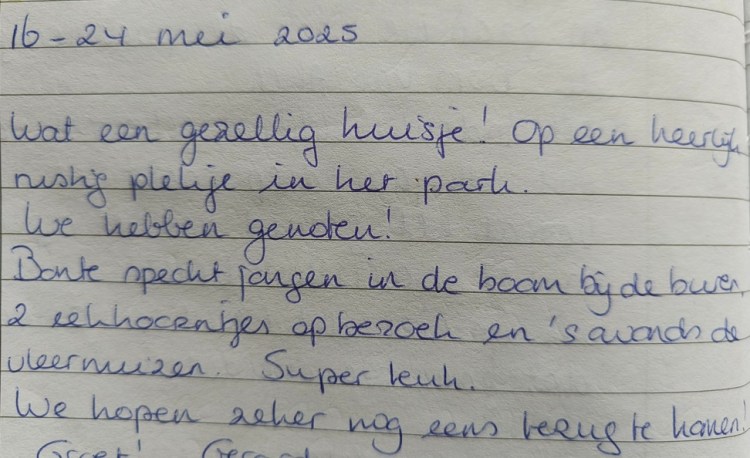 16-24 mei 2025
Wat een gezellig huisje! Op een heerlijk
rustig plekje in het park.
We hebben genoten!
Bonte specht jongen in de boom bij de buren,
2 eekhoorntjes op bezoek en 's avonds de
vleermuizen. Super leuk.
We hopen zeker nog eens terug te komen!